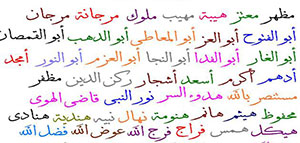 مظهر معتز هيبة مهيب ملوك مرجانة مرجان
أبو الفتوح أبو العز أبو المعاطي أبو الدهب أبو القمصان
أبو الغار أبو الفدا أبو النجا أبو العزم أبو النور أمجد
أدهم أكرم أسعد أشجار ركن الدين مظفر
مستنصر بالله هدو السر نور النبي قاضي الهوى
محفوظ هيثم هانم هنومة نهال نبيه هندية هنادى
هيكل همس فراج فرج الله عوض الله فضل الله